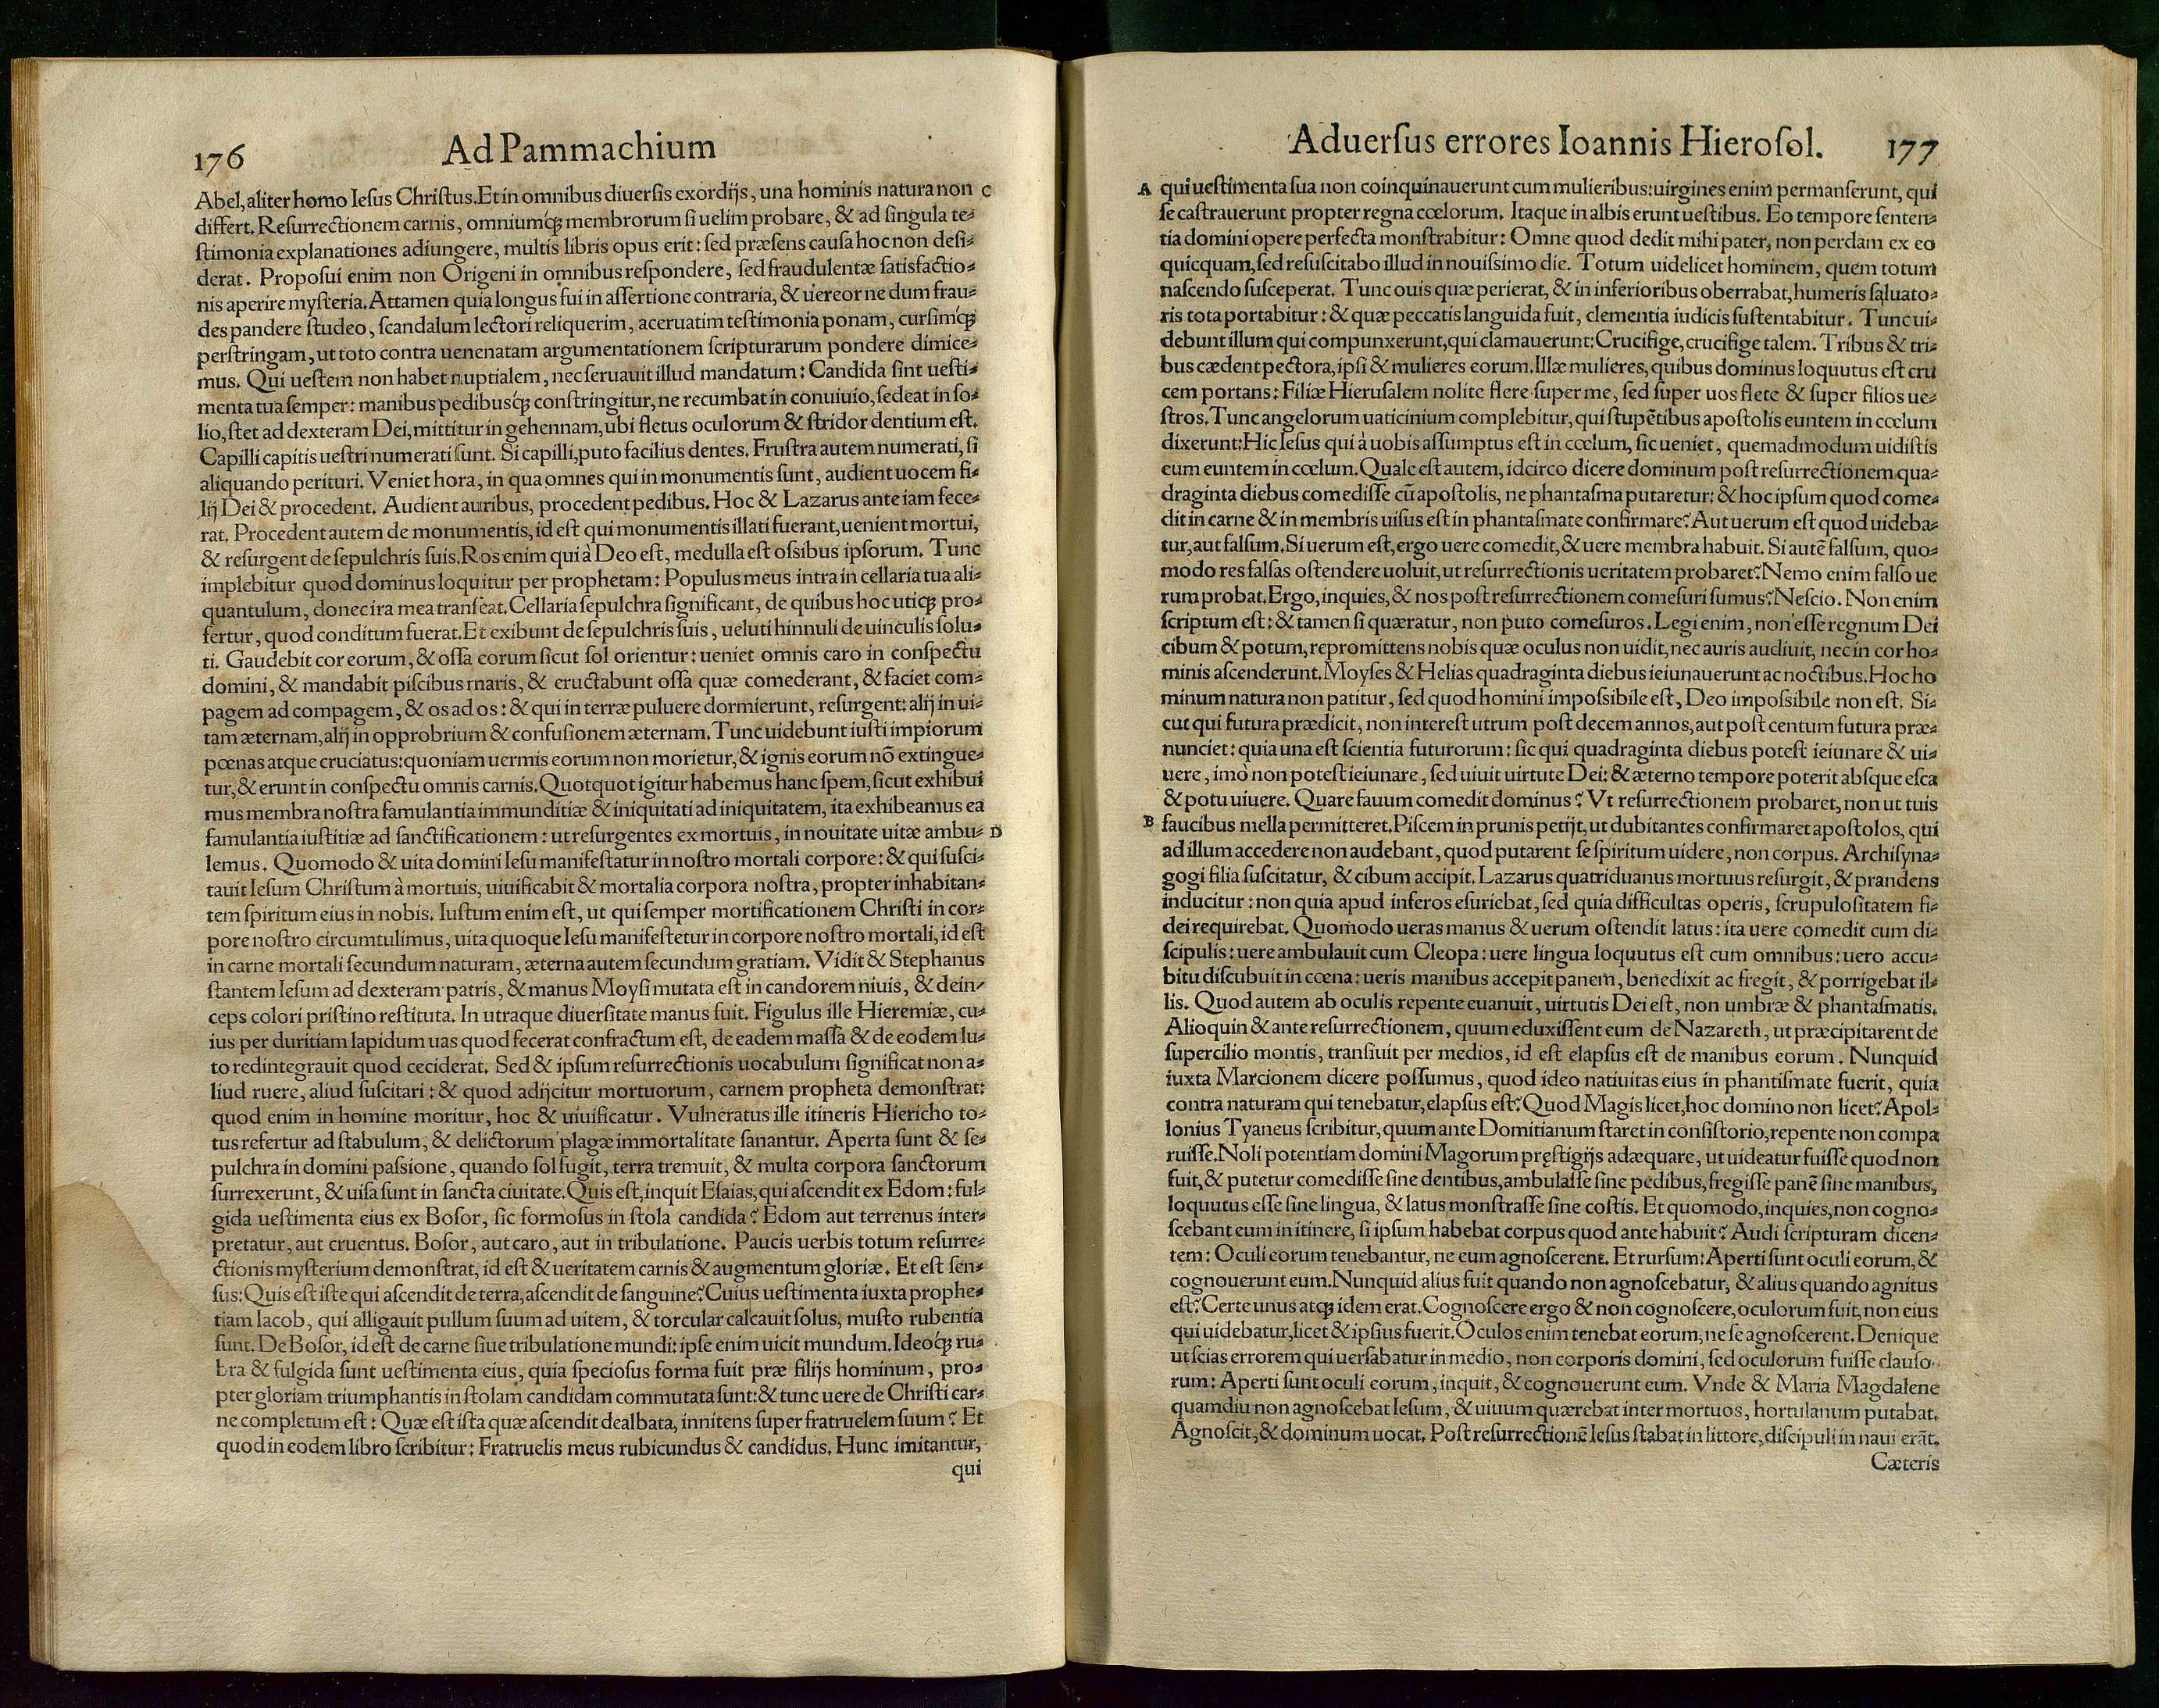 176
Ad Pammachium
Abel, aliter homo Iesus Christus. Et in omnibus diuersis exordijs, una hominis natura non C
differt. Resurrectionem carnis, omniumq́; membrorum si uelim probare, & ad singula te-
stimonia explanationes adiungere, multis libris opus erit: sed præsens causa hoc non desi-
derat. Proposui enim non Origeni in omnibus respondere, sed fraudulentæ satisfactio-
nis aperire mysteria. Attamen quia longus fui in assertione contraria, & uereor ne dum frau-
des pandere studeo, scandalum lectori reliquerim, aceruatim testimonia ponam, cursimq́;
perstringam, ut toto contra uenenatam argumentationem scripturarum pondere dimice-
mus. Qui uestem non habet nuptialem, nec seruauit illud mandatum: Candida sint uesti-
menta tua semper: manibus pedibusq́; constringitur, ne recumbat in conuiuio, sedeat in so-
lio, stet ad dexteram Dei, mittitur in gehennam, ubi fletus oculorum & stridor dentium est.
Capilli capitis uestri numerati sunt. Si capilli, puto facilius dentes. Frustra autem numerati, si
aliquando perituri. Veniet hora, in qua omnes qui in monumentis sunt, audient uocem fi-
lij Dei & procedent. Audient auribus, procedent pedibus. Hoc & Lazarus ante iam fece-
rat. Procedent autem de monumentis, id est qui monumentis illati fuerant, uenient mortui,
& resurgent de sepulchris suis. Ros enim qui à Deo est, medulla est ossibus ipsorum. Tunc
implebitur quod dominus loquitur per prophetam: Populus meus intra in cellaria tua ali-
quantulum, donec ira mea transeat. Cellaria sepulchra significant, de quibus hoc utiq; pro-
fertur, quod conditum fuerat. Et exibunt de sepulchris suis, ueluti hinnuli de uinculis solu-
ti. Gaudebit cor eorum, & ossa eorum sicut sol orientur: ueniet omnis caro in conspectu
domini, & mandabit piscibus maris, & eructabunt ossa quæ comederant, & faciet com-
pagem ad compagem, & os ad os: & qui in terræ puluere dormierunt, resurgent: alij in ui-
tam æternam, alij in opprobrium & confusionem æternam. Tunc uidebunt iusti impiorum
pœnas atque cruciatus: quoniam uermis eorum non morietur, & ignis eorum nō extingue-
tur, & erunt in conspectu omnis carnis. Quotquot igitur habemus hanc spem, sicut exhibui
mus membra nostra famulantia immunditiæ & iniquitati ad iniquitatem, ita exhibeamus ea
famulantia iustitiæ ad sanctificationem: ut resurgentes ex mortuis, in nouitate uitæ ambu- D
lemus. Quomodo & uita domini Iesu manifestatur in nostro mortali corpore: & qui susci-
tauit Iesum Christum à mortuis, uiuificabit & mortalia corpora nostra, propter inhabitan-
tem spiritum eius in nobis. Iustum enim est, ut qui semper mortificationem Christi in cor-
pore nostro circumtulimus, uita quoque Iesu manifestetur in corpore nostro mortali, id est
in carne mortali secundum naturam, æterna autem secundum gratiam. Vidit & Stephanus
stantem Iesum ad dexteram patris, & manus Moysi mutata est in candorem niuis, & dein-
ceps colori pristino restituta. In utraque diuersitate manus fuit. Figulus ille Hieremiæ, cu-
ius per duritiam lapidum uas quod fecerat confractum est, de eadem massa & de eodem lu-
to redintegrauit quod ceciderat. Sed & ipsum resurrectionis uocabulum significat non a-
liud ruere, aliud suscitari: & quod adijcitur mortuorum, carnem propheta demonstrat:
quod enim in homine moritur, hoc & uiuificatur. Vulneratus ille itineris Hiericho to-
tus refertur ad stabulum, & delictorum plagæ immortalitate sanantur. Aperta sunt & se-
pulchra in domini passione, quando sol fugit, terra tremuit, & multa corpora sanctorum
surrexerunt, & uisa sunt in sancta ciuitate. Quis est, inquit Esaias, qui ascendit ex Edom: ful-
gida uestimenta eius ex Bosor, sic formosus in stola candida? Edom aut terrenus inter-
pretatur, aut cruentus. Bosor, aut caro, aut in tribulatione. Paucis uerbis totum resurre-
ctionis mysterium demonstrat, id est & ueritatem carnis & augmentum gloriæ. Et est sen-
sus: Quis est iste qui ascendit de terra, ascendit de sanguine? Cuius uestimenta iuxta prophe-
tiam Iacob, qui alligauit pullum suum ad uitem, & torcular calcauit solus, musto rubentia
sunt. De Bosor, id est de carne siue tribulatione mundi: ipse enim uicit mundum. Ideoq́; ru-
bra & fulgida sunt uestimenta eius, quia speciosus forma fuit præ filijs hominum, pro-
pter gloriam triumphantis in stolam candidam commutata sunt: & tunc uere de Christi car-
ne completum est: Quæ est ista quæ ascendit dealbata, innitens super fratruelem suum? Et
quod in eodem libro scribitur: Fratruelis meus rubicundus & candidus. Hunc imitantur,
qui
Aduersus errores Ioannis Hierosol.
177
A qui uestimenta sua non coinquinauerunt cum mulieribus: uirgines enim permanserunt, qui
se castrauerunt propter regna cœlorum. Itaque in albis erunt uestibus. Eo tempore senten-
tia domini opere perfecta monstrabitur: Omne quod dedit mihi pater, non perdam ex eo
quicquam, sed resuscitabo illud in nouissimo die. Totum uidelicet hominem, quem totum
nascendo susceperat. Tunc ouis quæ perierat, & in inferioribus oberrabat, humeris saluato-
ris tota portabitur: & quæ peccatis languida fuit, clementia iudicis sustentabitur. Tunc ui-
debunt illum qui compunxerunt, qui clamauerunt: Crucifige, crucifige talem. Tribus & tri-
bus cædent pectora, ipsi & mulieres eorum. Illæ mulieres, quibus dominus loquutus est cru
cem portans: Filiæ Hierusalem nolite flere super me, sed super uos flete & super filios ue-
stros. Tunc angelorum uaticinium complebitur, qui stupētibus apostolis euntem in cœlum
dixerunt: Hic Iesus qui à uobis assumptus est in cœlum, sic ueniet, quemadmodum uidistis
eum euntem in cœlum. Quale est autem, idcirco dicere dominum post resurrectionem qua-
draginta diebus comedisse cū apostolis, ne phantasma putaretur: & hoc ipsum quod come-
dit in carne & in membris uisus est in phantasmate confirmare? Aut uerum est quod uideba-
tur, aut falsum. Si uerum est, ergo uere comedit, & uere membra habuit. Si autē falsum, quo-
modo res falsas ostendere uoluit, ut resurrectionis ueritatem probaret? Nemo enim falso ue
rum probat. Ergo, inquies, & nos post resurrectionem comesuri sumus? Nescio. Non enim
scriptum est: & tamen si quæratur, non puto comesuros. Legi enim, non esse regnum Dei
cibum & potum, repromittens nobis quæ oculus non uidit, nec auris audiuit, nec in cor ho-
minis ascenderunt. Moyses & Helias quadraginta diebus ieiunauerunt ac noctibus. Hoc ho
minum natura non patitur, sed quod homini impossibile est, Deo impossibile non est. Si-
cut qui futura prædicit, non interest utrum post decem annos, aut post centum futura præ-
nunciet: quia una est scientia futurorum: sic qui quadraginta diebus potest ieiunare & ui-
uere, imò non potest ieiunare, sed uiuit uirtute Dei: & æterno tempore poterit absque esca
& potu uiuere. Quare fauum comedit dominus? Vt resurrectionem probaret, non ut tuis
B faucibus mella permitteret. Piscem in prunis petijt, ut dubitantes confirmaret apostolos, qui
ad illum accedere non audebant, quod putarent se spiritum uidere, non corpus. Archisyna-
gogi filia suscitatur, & cibum accipit. Lazarus quatriduanus mortuus resurgit, & prandens
inducitur: non quia apud inferos esuriebat, sed quia difficultas operis, scrupulositatem fi-
dei requirebat. Quomodo ueras manus & uerum ostendit latus: ita uere comedit cum di-
scipulis: uere ambulauit cum Cleopa: uere lingua loquutus est cum omnibus: uero accu-
bitu discubuit in cœna: ueris manibus accepit panem, benedixit ac fregit, & porrigebat il-
lis. Quod autem ab oculis repente euanuit, uirtutis Dei est, non umbræ & phantasmatis.
Alioquin & ante resurrectionem, quum eduxissent eum de Nazareth, ut præcipitarent de
supercilio montis, transiuit per medios, id est elapsus est de manibus eorum. Nunquid
iuxta Marcionem dicere possumus, quod ideo natiuitas eius in phantismate fuerit, quia
contra naturam qui tenebatur, elapsus est? Quod Magis licet, hoc domino non licet? Apol-
lonius Tyaneus scribitur, quum ante Domitianum staret in consistorio, repente non compa
ruisse. Noli potentiam domini Magorum pręstigijs adæquare, ut uideatur fuisse quod non
fuit, & putetur comedisse sine dentibus, ambulasse sine pedibus, fregisse panē sine manibus,
loquutus esse sine lingua, & latus monstrasse sine costis. Et quomodo, inquies, non cogno-
scebant eum in itinere, si ipsum habebat corpus quod ante habuit? Audi scripturam dicen-
tem: Oculi eorum tenebantur, ne eum agnoscerent. Et rursum: Aperti sunt oculi eorum, &
cognouerunt eum. Nunquid alius fuit quando non agnoscebatur, & alius quando agnitus
est? Certe unus atq; idem erat. Cognoscere ergo & non cognoscere, oculorum fuit, non eius
qui uidebatur, licet & ipsius fuerit. Oculos enim tenebat eorum, ne se agnoscerent. Denique
ut scias errorem qui uersabatur in medio, non corporis domini, sed oculorum fuisse clauso-
rum: Aperti sunt oculi eorum, inquit, & cognouerunt eum. Vnde & Maria Magdalene
quamdiu non agnoscebat Iesum, & uiuum quærebat inter mortuos, hortulanum putabat.
Agnoscit, & dominum uocat. Post resurrectionē Iesus stabat in littore, discipuli in naui erāt.
Cæteris